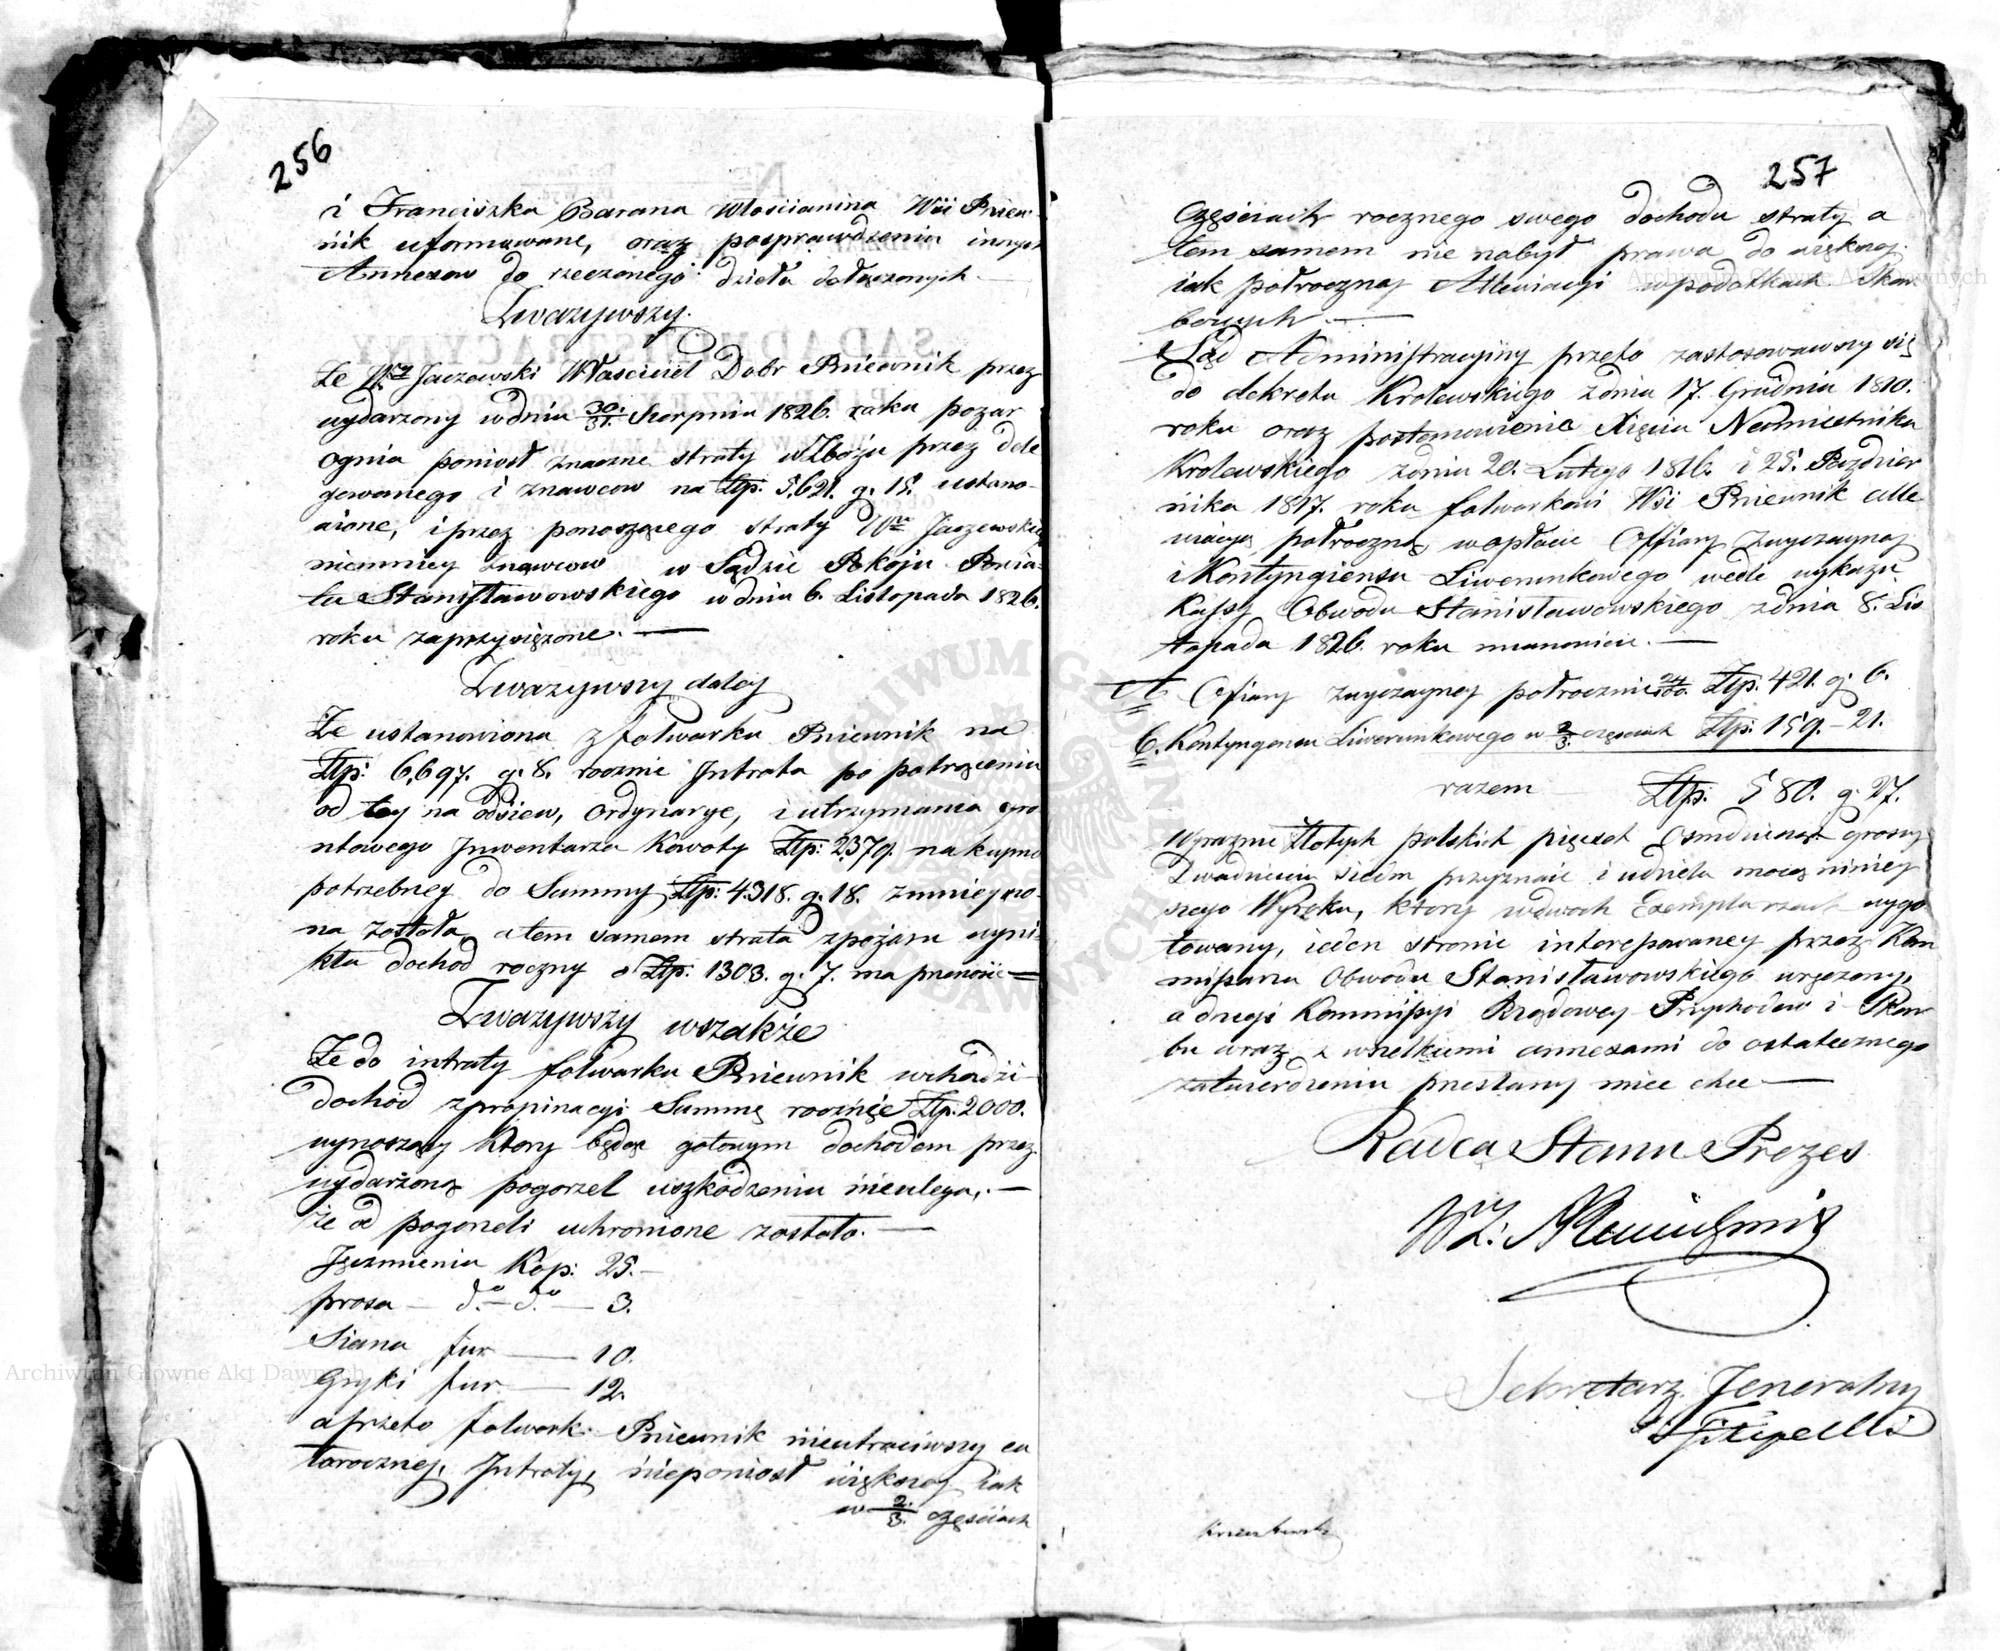 256
i Franciszka Barana Włościanina Wsi Pniew
nik uformowane, oraz posprawdzeniu innych
Annexow do rzeczonego dzieła dołączonych.
Zwazywszy.
Że Wny Jaczewski Właściciel Dobr Pniewnik przez
wydarzony w dniu 30/31. Sierpnia 1826. roku pozar
ognia poniosł znaczne straty w Zbożu przez dele
gowanego i znawcow na Złp. 5,621. g. 15. ustano-
wione, i przez ponoszącego straty Wgo Jaczewskiego
niemniey znawcow w Sądzie Pokoju Powia-
tu Stanisławowskiego w dniu 6. Listopada 1826.
roku zaprzysiężone.
Zwazywszy daley
Że ustanowiona z folwarku Pniewnik na
Złp: 6,697. g. 8. rocznie Intrata po potrąceniu
od tey na odsiew, Ordynaryę, i utrzymania gro
ntowego Inwentarza Kwoty Złp: 2379. na kupno
potrzebney do Summy Złp: 4318. g. 18. zmnieyszo-
na została, a tem samem strata z pożaru wyni-
kła dochod roczny o Złp: 1303. g. 7. ma przenosić
Zwazywszy wszakże
Że do intraty folwarku Pniewnik wchodzi
dochod z propinacyi Summę rocznie Złp: 2000.
wynoszący ktory będąc gotowym dochodem przez
wydarżoną pogorzel uszkodzeniu nieulega,
że od pogorzeli uchronione zostało.
Jęczmienia Kop: 25.
prosa d.o d.o 3.
Siana fur 10.
Gryki fur 12.
a przeto folwark Pniewnik nieutraciwszy ca
łorocznej Intraty, nieponiosł większej iak
w 2/3. częściach
257
Częściach rocznego swego dochodu straty a
tem samem nie nabył prawa do większej
iak połrocznej Allewiacyi w podatkach Skar
bowych.
Sąd Administracyiny przeto zastosowawszy się
do dekretu Krolewskiego z dnia 17. Grudnia 1810.
roku oraz postanowienia Xięcia Namiestnika
Krolewskiego z dnia 20. Lutego 1816. i 25. Pazdzier
nika 1817. roku folwarkowi Wsi Pniewnik alle
wiacyą połroczną w opłacie Offiary Zwyczayney
i Kontyngiensu Liwerunkowego wedle wykazu
Kassy Obwodu Stanisławowskiego z dnia 8. Lis
topada 1826. roku mianowicie.
A Ofiary zwyczayney połrocznie 24/100. Złp. 421. g. 6.
b. Kontyngensu Liwerunkowego w 2/3. częściach Złp: 159. – 21.
razem Złp: 580. g. 27.
Wyraznie Złotych polskich pięcset Osmdziesiąt groszy
Dwadziescia siedm przyznaie i udziela mocą niniey
szego Wyroku, ktory w dwoch Exemplarzach wygo
towany, ieden stronie interessowaney przez Kom
missarza Obwodu Stanisławowskiego wręczony,
a drugi Kommissyi Rządowey Przychodow i Skar
bu wraz z wszelkiemi annexami do ostatecznego
zatwierdzenia przesłany miec chce
Radca Stanu Prezes
WZ:
Sekretarz Jeneralny
Filipecki